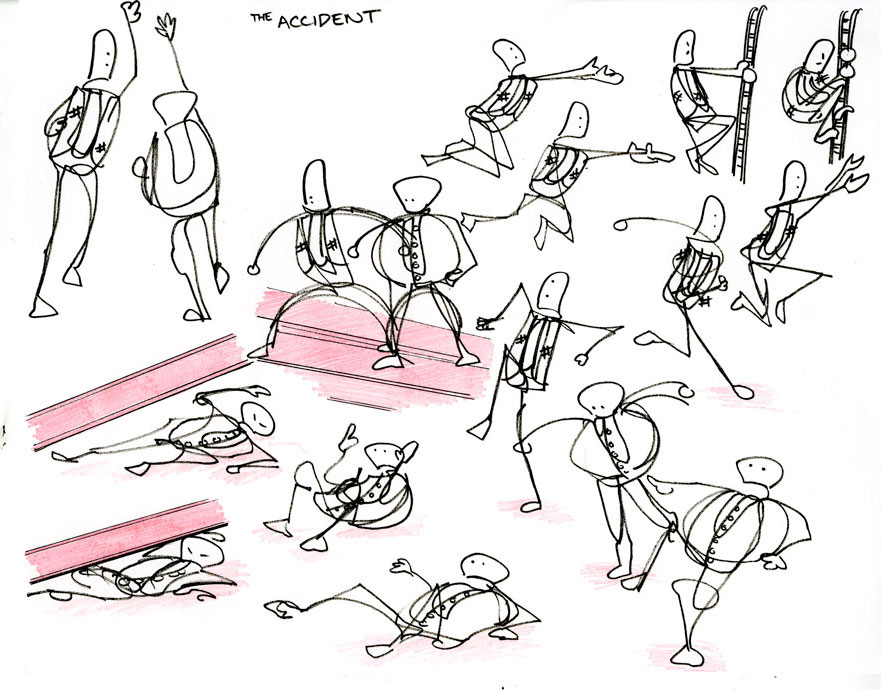 THE ACCIDENT